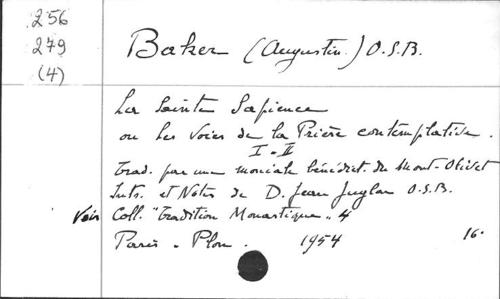 256
279
(4)
Baker (Augustin.) O.S.B.
La Sainte Sapience
ou les Voies de la Prière contemplative.
I-II
Trad. par une moniale bénédict. du Mont-Olivet
Intr. et Notes de D. Jean Juglar O.S.B.
Voir Coll. "Tradition Monastique" 4
Paris - Plon. 1954 16°